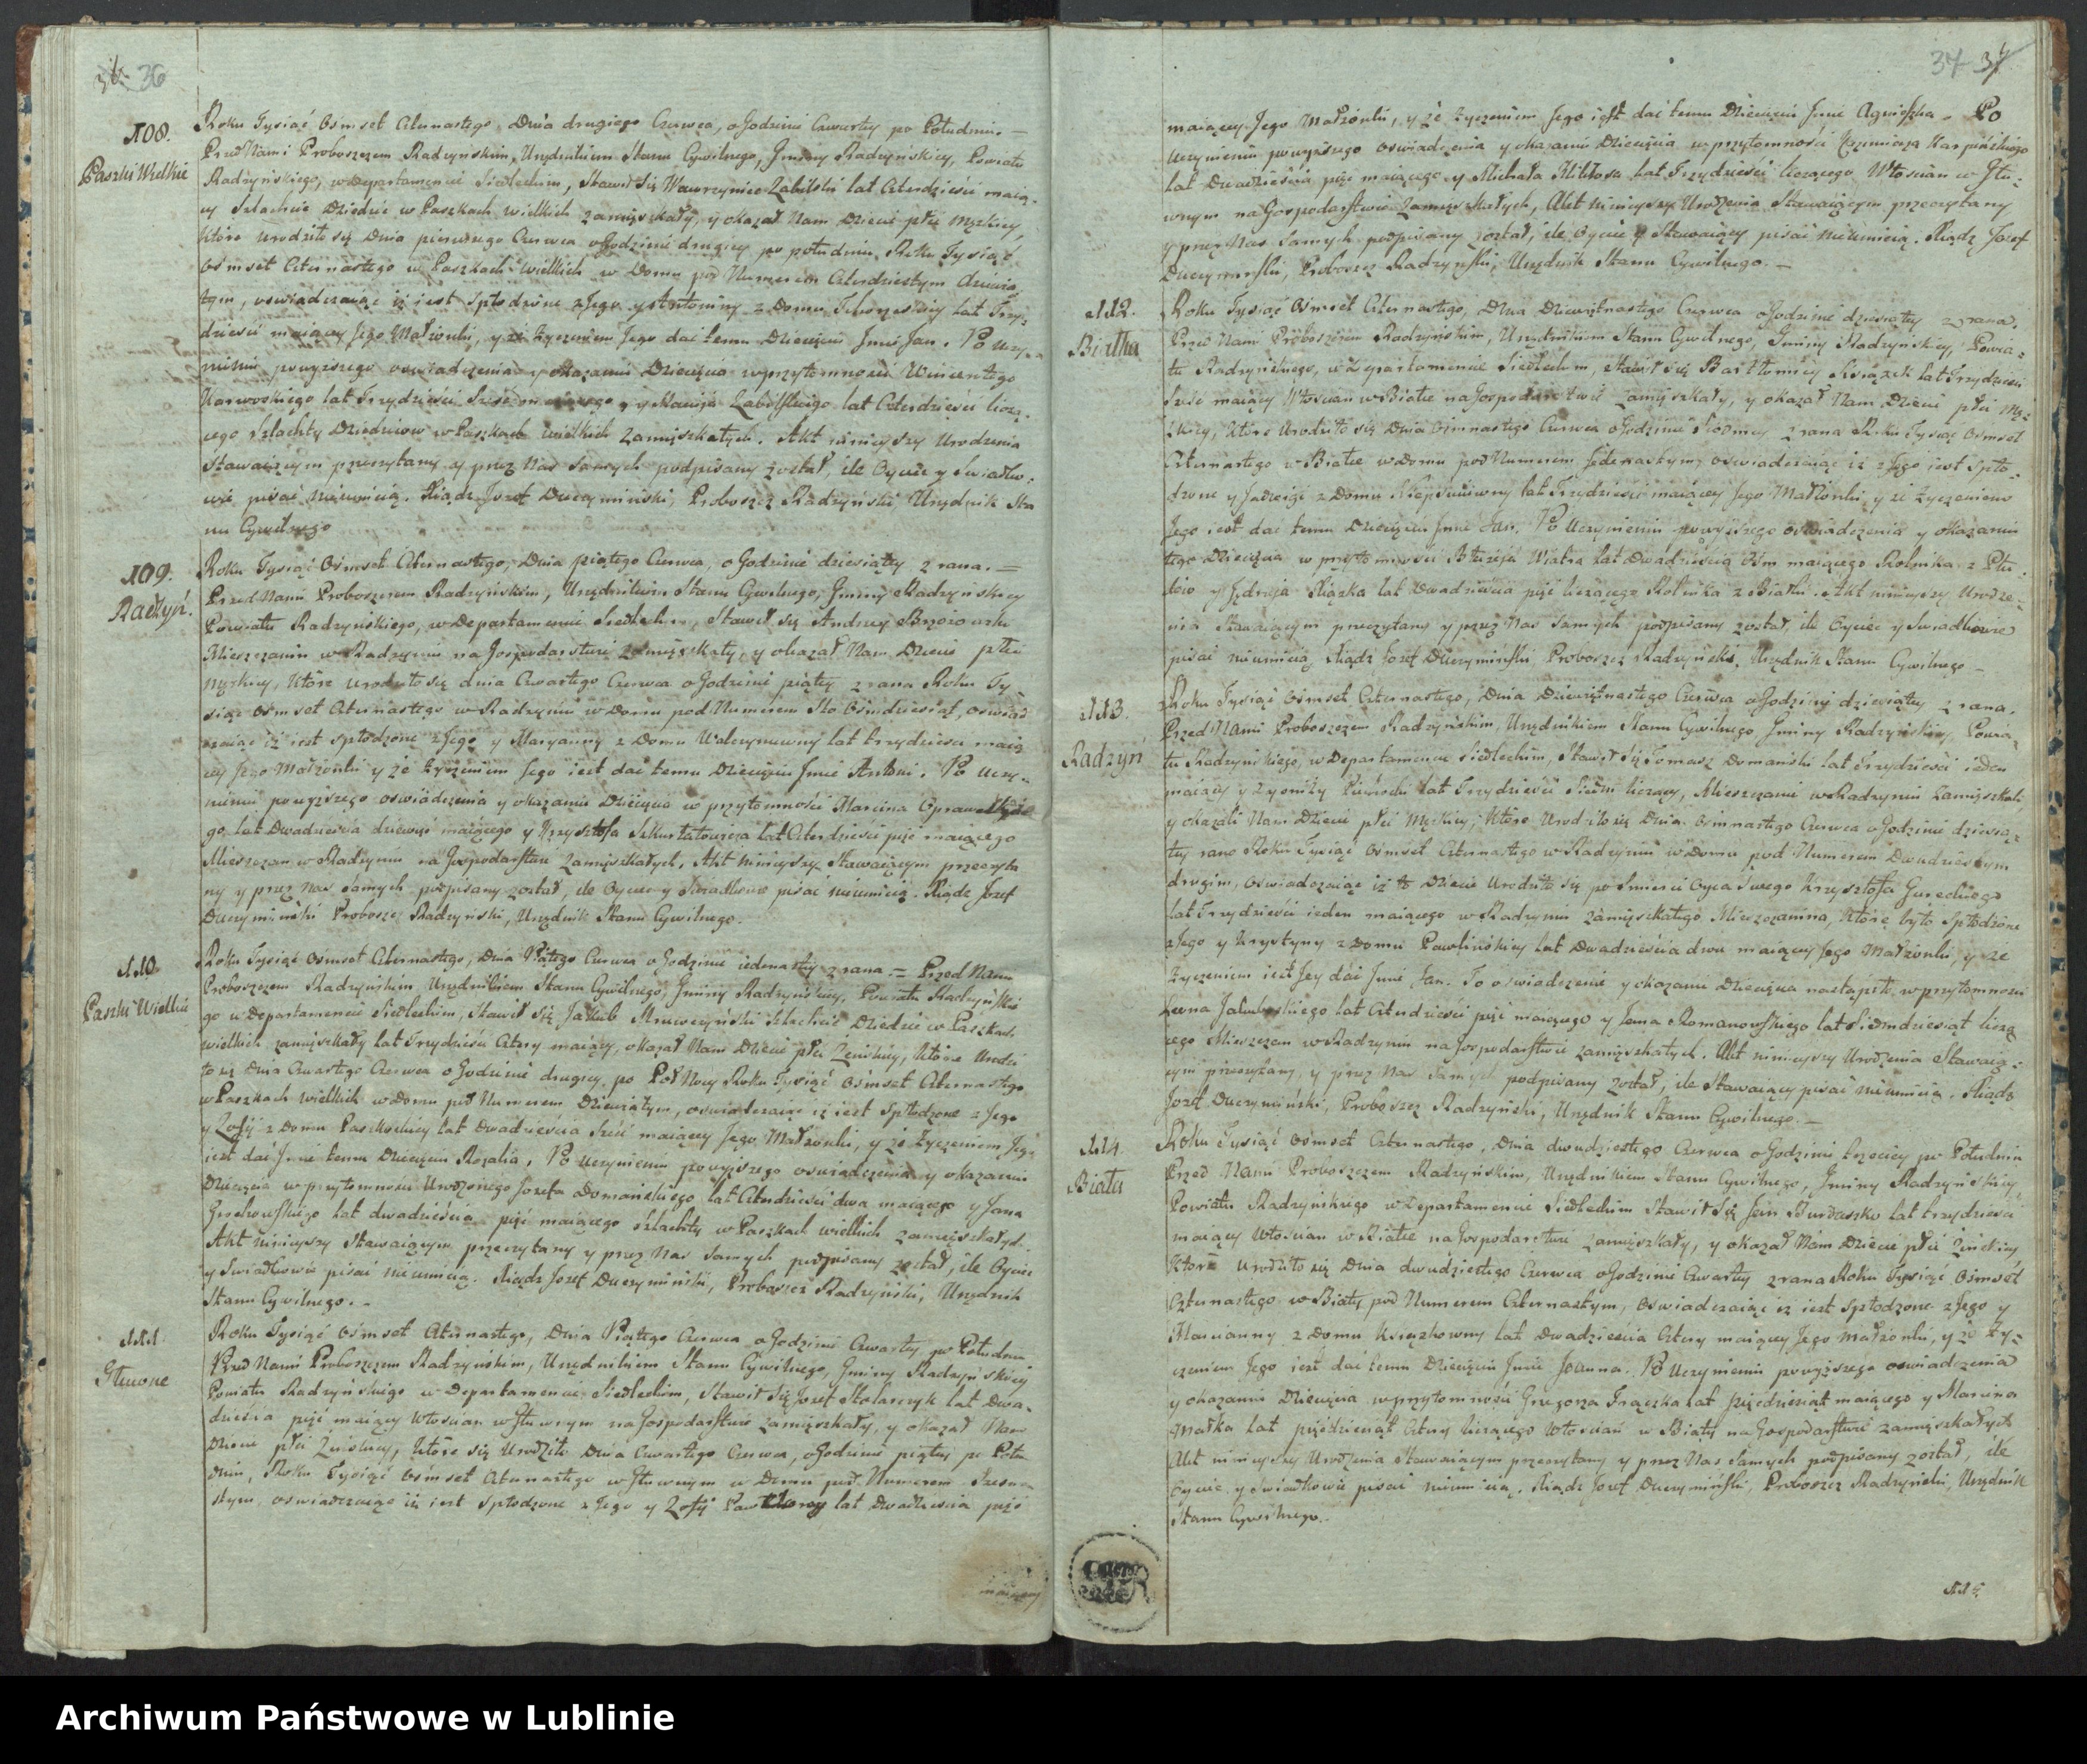 36
108.
Paszki Wielkie
Roku Tysiąć Osmset Czternastego, Dnia drugiego Czerwca, o Godzinie Czwartey po Południu. —
Przed Nami Proboszczem Radzyńskim, Urzędnikiem Stanu Cywilnego, Gminy Radzyńskiey, Powiatu
Radzyńskiego, w Departamencie Siedleckim, Stawił Się Wawrzyniec Zabilski lat Czterdzieści maią-
cy Szlachcic Dziedzic w Paszkach wielkich zamięszkały, y okazał Nam Dziecie płci męzkiey,
które urodziło się Dnia pierwszego Czerwca o Godzinie drugiey po południu Roku Tysiąć
Osmset Czternastego w Paszkach wielkich w Domu pod Numerem Czterdziestym dziewią-
tym, oswiadczaiąc iż iest spłodzone z Jego y Antoniny z Domu lat Trzy-
dzieści maiącey Jego Małżonki, y że życzeniem Jego dać temu Dziecięciu Jmie Jan. Po uczy-
nieniu powyższego oswiadczenia y okazaniu Dziecięcia w przytomności Wincentego
Karwowskiego lat Trzydzieści Sześć maiącego, y Macieja Zabilskiego lat Czterdzieści liczą-
cego Szlachty Dziedziców w Paszkach wielkich zamięszkałych. Akt ninieyszy Urodzenia
Stawaiącym przeczytany y przez Nas Samych podpisany został, ile Oyciec y Swiadko-
wie pisać nieumieią. Xiądz Jozef Duczyminski, Proboszcz Radzyński, Urzędnik Sta
nu Cywilnego
109.
Radzyń.
Roku Tysiąć Osmset Czternastego, Dnia piątego Czerwca, o Godzinie dziesiątey z rana. —
Przed Nami Proboszczem Radzyńskim, Urzędnikiem Stanu Cywilnego, Gminy Radzyńskiey
Powiatu Radzyńskiego, w Departamencie Siedleckim, Stawił się Andrzey Brzozowski
Mieszczanin w Radzyniu na Gospodarstwie zamięszkały, y okazał Nam Dziecie płci
męzkiey, które urodziło się dnia Czwartego Czerwca o Godzinie piątey z rana Roku Ty-
siąć Osmset Czternastego w Radzyniu w Domu pod Numerem Sto Osmdziesiąt, oswiad
czaiąc iż iest spłodzone z Jego y Maryanny z Domu lat trzydzieści maią
cey Jego Małżonki y że życzeniem Jego iest dać temu Dziecięciu Jmie Antoni. Po uczy-
nieniu powyższego oswiadczenia y okazaniu Dziecięcia w przytomności Marcina
go lat Dwadzieścia dziewięć maiącego y Krzysztofa lat Czterdzieści pięć maiącego
Mieszczan w Radzyniu na Gospodarstwie zamięszkałych, Akt ninieyszy Stawaiącym przeczyta
ny y przez Nas Samych podpisany został, ile Oyciec y Swiadkowie pisać nieumieią. Xiądz Jozef
Duczyminski Proboszcz Radzyński, Urzędnik Stanu Cywilnego.
110
Paszki Wielkie
Roku Tysiąć Osmset Czternastego, Dnia Piątego Czerwca o Godzinie iedenastey z rana. = Przed Nami
Proboszczem Radzyńskim, Urzędnikiem Stanu Cywilnego, Gminy Radzyńskiey, Powiatu Radzyńskie
go w Departamencie Siedleckim, Stawił się Jakub Szlachcic Dziedzic w Paszkach
wielkich zamięszkały lat Trzydzieści Cztery maiący, okazał Nam Dziecie płci Żenskiey, które urodzi
ło się Dnia Czwartego Czerwca o Godzinie drugiey po Pół Nocy Roku Tysiąć Osmset Czternastego
w Paszkach wielkich w Domu pod Numerem Dziewiątym, oswiadczaiąc iż iest spłodzone z Jego
y Zofij z Domu lat Dwadzieścia Sześć maiącey Jego Małżonki, y że życzeniem Jego
iest dać Jmie temu Dziecięciu Rozalia. Po uczynieniu powyższego oswiadczenia y okazaniu
Dziecięcia w przytomności Urodzonego Jozefa Domańskiego lat Czterdzieści dwa maiącego y Jana
Grochowskiego lat dwadzieścia pięć maiącego Szlachty w Paszkach wielkich zamięszkałych.
Akt ninieyszy Stawaiącym przeczytany y przez Nas Samych podpisany został, ile Oyciec
y Swiadkowie pisać nieumieią. Xiądz Jozef Duczyminski, Proboszcz Radzyński, Urzędnik
Stanu Cywilnego. -
111
Główne
Roku Tysiąć Osmset Czternastego, Dnia Piątego Czerwca o Godzinie Czwartey po Południu
Przed Nami Proboszczem Radzyńskim, Urzędnikiem Stanu Cywilnego, Gminy Radzyńskiey
Powiatu Radzyńskiego w Departamencie Siedleckim, Stawił się Jozef Stolarczyk lat Dwa-
dzieścia pięć maiący Włościan w Głownym na Gospodarstwie zamięszkały, y okazał Nam
Dziecie płci Żeńskiey, które się urodziło Dnia Czwartego Czerwca, o Godzinie piątey po Połu
dniu, Roku Tysiąć Osmset Czternastego w Głownym w Domu pod Numerem
stym oswiadczaiąc iż iest spłodzone z Jego y Zofij lat Dwadzieścia pięć
maiącey
37
maiącey Jego Małżonki, y że życzeniem Jego iest dać temu Dziecięciu Jmie Agnieszka. Po
uczynieniu powyższego oswiadczenia y okazaniu Dziecięcia w przytomności Kazimierza Karpińskiego
lat Dwadzieścia pięć maiącego y Michała lat Trzydzieści liczącego Włościan w Gło-
wnym na Gospodarstwie zamięszkałych, Akt ninieyszy Urodzenia Stawaiącym przeczytany
y przez Nas Samych podpisany został, ile Oyciec y Stawaiący pisać nieumieią. Xiądz Jozef
Duczyminski, Proboszcz Radzyński, Urzędnik Stanu Cywilnego. —
112.
Białka
Roku Tysiąć Osmset Czternastego, Dnia Dziewiętnastego Czerwca o Godzinie dziesiątey z rana.
Przed Nami Proboszczem Radzyńskim, Urzędnikiem Stanu Cywilnego, Gminy Radzyńskiey, Powia-
tu Radzyńskiego, w Departamencie Siedleckim, Stawił się Bartłomiey lat Trzydzieści
Sześć maiący Włościan w Białce na Gospodarstwie zamięszkały, y okazał Nam Dziecie płci Mę-
zkiey, które urodziło się Dnia Osmnastego Czerwca o Godzinie Siodmey z rana Roku Tysiąc Osmset
Czternastego w Białce w Domu pod Numerem Jedenastym, oswiadczaiąc iż z Jego iest spło-
dzone y Jadwigi z Domu lat Trzydzieści maiącey Jego Małżonki y że życzeniem
Jego iest dać temu Dziecięciu Jmie Jan. Po uczynieniu powyższego oswiadczenia y okazaniu
tego Dziecięcia w przytomności Błażeja Wiatra lat Dwadzieścia Ośm maiącego Rolnika z
y Jędrzeja Xiązka lat Dwadzieścia pięć liczącego Rolnika z Białki. Akt ninieyszy Urodze-
nia Stawaiącym przeczytany y przez Nas Samych podpisany został, ile Oyciec y Swiadkowie
pisać nieumieią Xiądz Jozef Duczyminski Proboszcz Radzyński, Urzędnik Stanu Cywilnego —
113.
Radzyń
Roku Tysiąć Osmset Czternastego, Dnia Dziewiętnastego Czerwca o Godzinie dziewiątey z rana.
Przed Nami Proboszczem Radzyńskim, Urzędnikiem Stanu Cywilnego Gminy Radzyńskiey, Powia-
tu Radzyńskiego, w Departamencie Siedleckim, Stawił się Tomasz Domański lat Trzydzieści ieden
maiący y lat Trzydzieści Siedm liczący, Mieszczanie w Radzyniu zamięszkali
y okazali Nam Dziecie płci Męzkiey, które Urodziło się Dnia Osmnastego Czerwca o Godzinie dziewią-
tey rano Roku Tysiąć Osmset Czternastego w Radzyniu w Domu pod Numerem Dwudziestym
drugim, oswiadczaiąc iż to Dziecie urodziło się po śmierci Oyca swego Krzysztofa Gureckiego
lat Trzydzieści ieden maiącego w Radzyniu zamięszkałego Mieszczanina, które było spłodzone
z Jego y Krystyny z Domu Pawlińskiey lat Dwadzieścia dwa maiącey Jego Małżonki, y że
życzeniem iest Jey dać Jmie Jan. To oswiadczenie y okazanie Dziecięcia nastąpiło w przytomności
Leona Jakubowskiego lat Czterdzieści pięć maiącego y Jana Romanowskiego lat Siedmdziesiąt liczą
cego Mieszczan w Radzyniu na Gospodarstwie zamięszkałych. Akt ninieyszy Urodzenia Stawaią-
cym przeczytany y przez Nas Samych podpisany został, ile Stawaiący pisać nieumieią. Xiądz
Jozef Duczyminski, Proboszcz Radzyński, Urzędnik Stanu Cywilnego. —
114.
Biała
Roku Tysiąć Osmset Czternastego, Dnia dwudziestego Czerwca o Godzinie trzeciey po Południu
Przed Nami Proboszczem Radzyńskim, Urzędnikiem Stanu Cywilnego, Gminy Radzyńskiey
Powiatu Radzyńskiego w Departamencie Siedleckim Stawił Się Jan Burdaszko lat trzydzieści
maiący Włościan w Białce na Gospodarstwie zamięszkały, y okazał Nam Dziecie płci Żeńskiey,
które urodziło się Dnia dwudziestego Czerwca o Godzinie Czwartey z rana Roku Tysiąć Osmset
Czternastego w Białey pod Numerem Czternastym, oswiadczaiąc iż iest spłodzone z Jego y
Marcianny z Domu lat Dwadzieścia Cztery maiącey Jego Małżonki, y że ży-
czeniem Jego iest dać temu Dziecięciu Jmie Joanna. Po uczynieniu powyższego oswiadczenia
y okazaniu Dziecięcia w przytomności Grzegorza lat pięćdziesiąt maiącego y Marcina
Małka lat pięćdziesiąt Cztery liczącego Włościan w Białey na Gospodarstwie zamięszkałych
Akt ninieyszy Urodzenia Stawaiącym przeczytany y przez Nas Samych podpisany został, ile
Oyciec y Swiadkowie pisać nieumieią. Xiądz Jozef Duczyminski, Proboszcz Radzyński, Urzędnik
Stanu Cywilnego.
115
Archiwum Państwowe w Lublinie